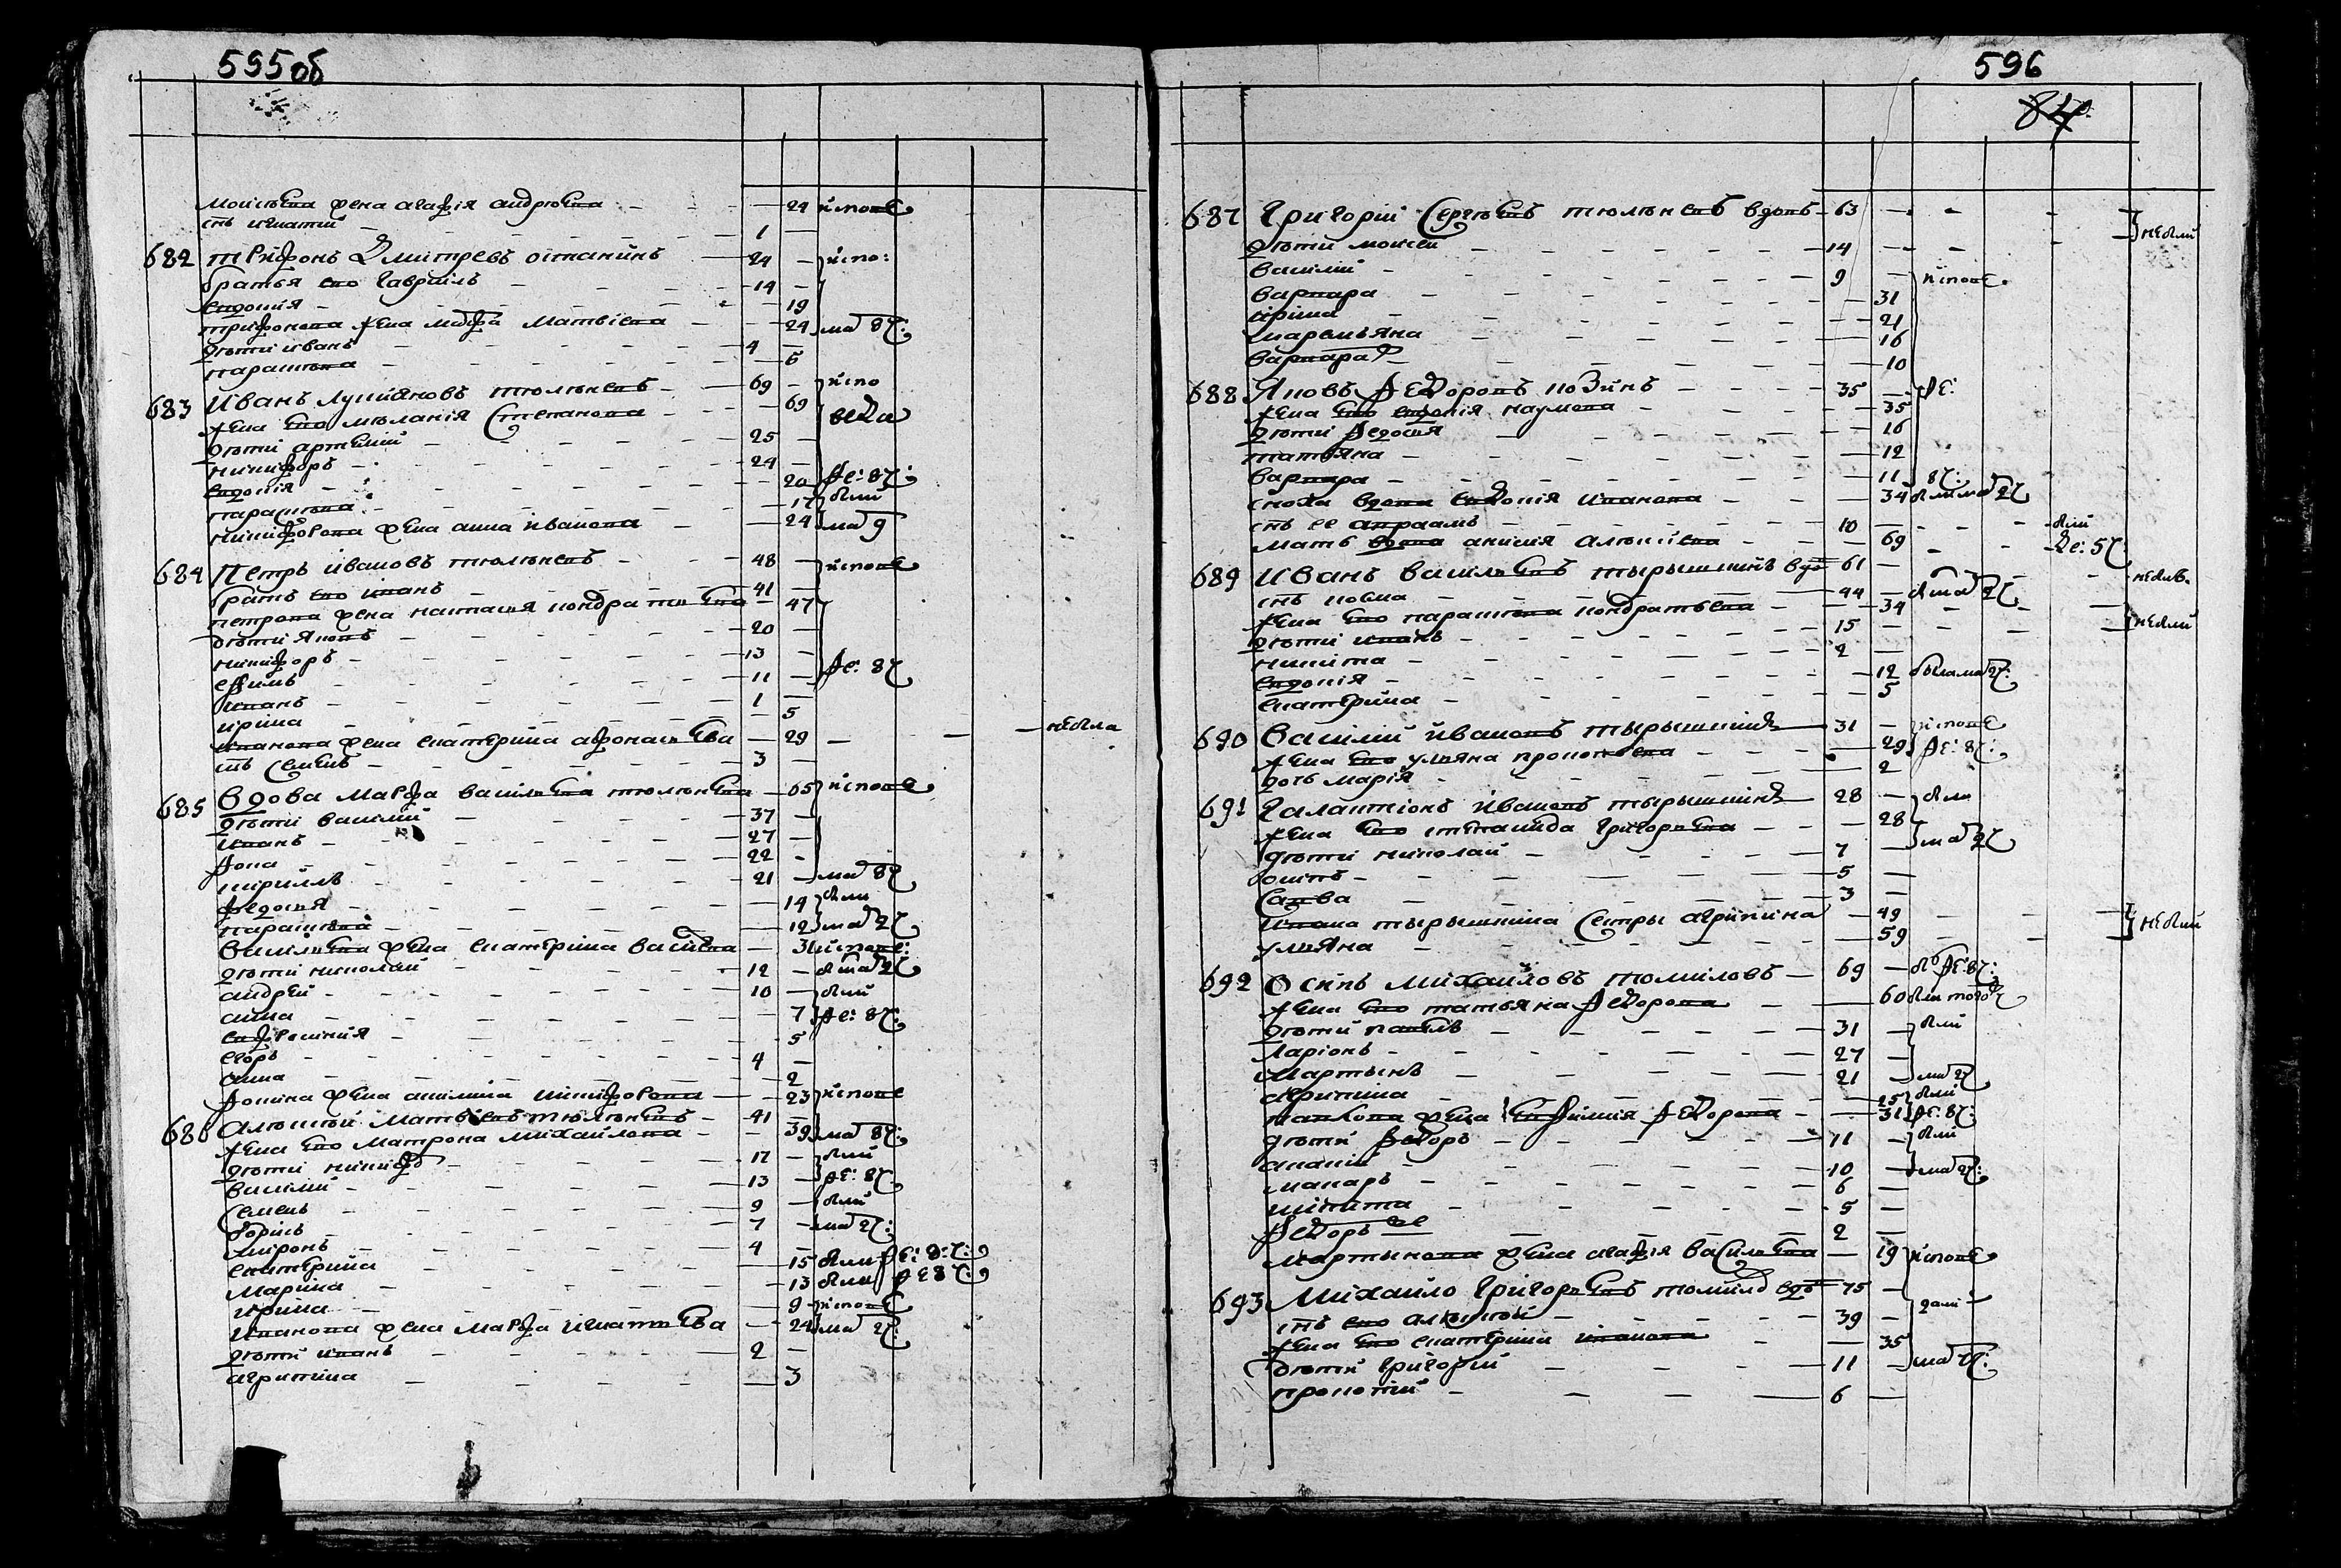 595об
Моисѣева жена агафія андрѣева 24 испове
снъ игнатій 1
682 трифонъ Дмитревъ останинъ 24 испо:
братья ево гаврилъ 14
евдокия 19
трифонова жена марфа Матвѣева 24 ма 8
дѣти иванъ 4
парасковя 6
683 Иванъ Лукияновъ тюлѣневъ 69 испо
жена ево мѣланія Степанова 69
дѣти артемій 25
никифоръ 24
евдокія 20 фе: 8
парасковя 17 были
никифорова жена анна иванова 24 ма 9
684 Петръ ивановъ тюлѣневъ 48 испове
братъ ево иванъ 41
петрова жена наталия кондратьева 47
дѣти яковъ 20
никифоръ 13
ефимъ 11 фе: 8
иванъ 1
ирина 5
иванова жена екатерина афонасьева 29 небыла
снъ Семенъ 3
685 вдова Марфа васильева тюлѣнева 65 испове
дѣти василий 37
иванъ 27
фока 22
кирилъ 21 ма 8
федосия 14 были
парасковя 12 ма 2
васильева жена екатерина васильева 31 испове:
дѣти николай 12 ма 2
андрей 10 были
анна 7 фе: 8
евфросиния 5
егоръ 4
анна 2
фокина жена акилина никифорова 23 испове
686 алексѣй Матвѣевъ тюлѣневъ 41
жена ево Матрона Михайлова 39 ма 8
дѣти никифоръ 17 были
василий 13 фе: 8
Семенъ 9 были
борисъ 7 ма 2
миронъ 4
екатерина 15 были фе: 8:
марина 13 были фе 8
ирина 9 испове
иванова жена марфа игнатьева 24 ма 2
дѣти иванъ 2
агрипина 3
596
84
687 Григорій Сергѣевъ тюлѣневъ вдовъ 63 небыли
дѣти моисей 14
василий 9 испове
варвара 31
ирина 21
маремьяна 16
варвара 10
688 Яковъ Федоровъ козинъ 35 фе:
жена ево евдокія наумова 35
дѣти федосия 16
татьяна 12
варвара 11 8:
сноха вдова евдокія иванова 34 были ма 2
снъ ее авраамъ 10 были
мать вдова анисия алексѣева 69 Де: 5
689 Иванъ васильевъ тырышкинъ вдо 61 небыв.
снъ козма 44 ма 2
жена ево парасковя кондратьева 34 небыли
дѣти иванъ 15
никита 2
евдокія 12 была ма 2:
екатерина 5
690 василий ивановъ тырышкинъ 31 испове
жена ево ульяна прокопьева 29 фе: 8:
дочь марія 2
691 Галактіонъ ивановъ тырышкинъ 28 были
жена ево степанида григорьева 28 ма 2
дѣти николай 7
осипъ 5
Савва 3
ивана тырышкина Сестры агрипина 49 небыли
ульяна 59
692 Осипъ Михайловъ томиловъ 69 фе: 8:
жена ево татьяна Федорова 60
дѣти павелъ 31 были
ларіонъ 27
мартынъ 21 ма 2
агрипина 15 были
павлова жена евфимия Федорова 31 фе: 8:
дѣти Федоръ 11 были
ананій 10 ма 2:
макаръ 6
никита 5
Федоръ же 2
мартынова жена агафія васильева 19 испове
693 Михайло Григорьевъ томиловъ вдо 75
снъ ево алексѣй 39
жена ево екатерина иванова 35
дѣти григорій 11 ма 2:
прокопій 6